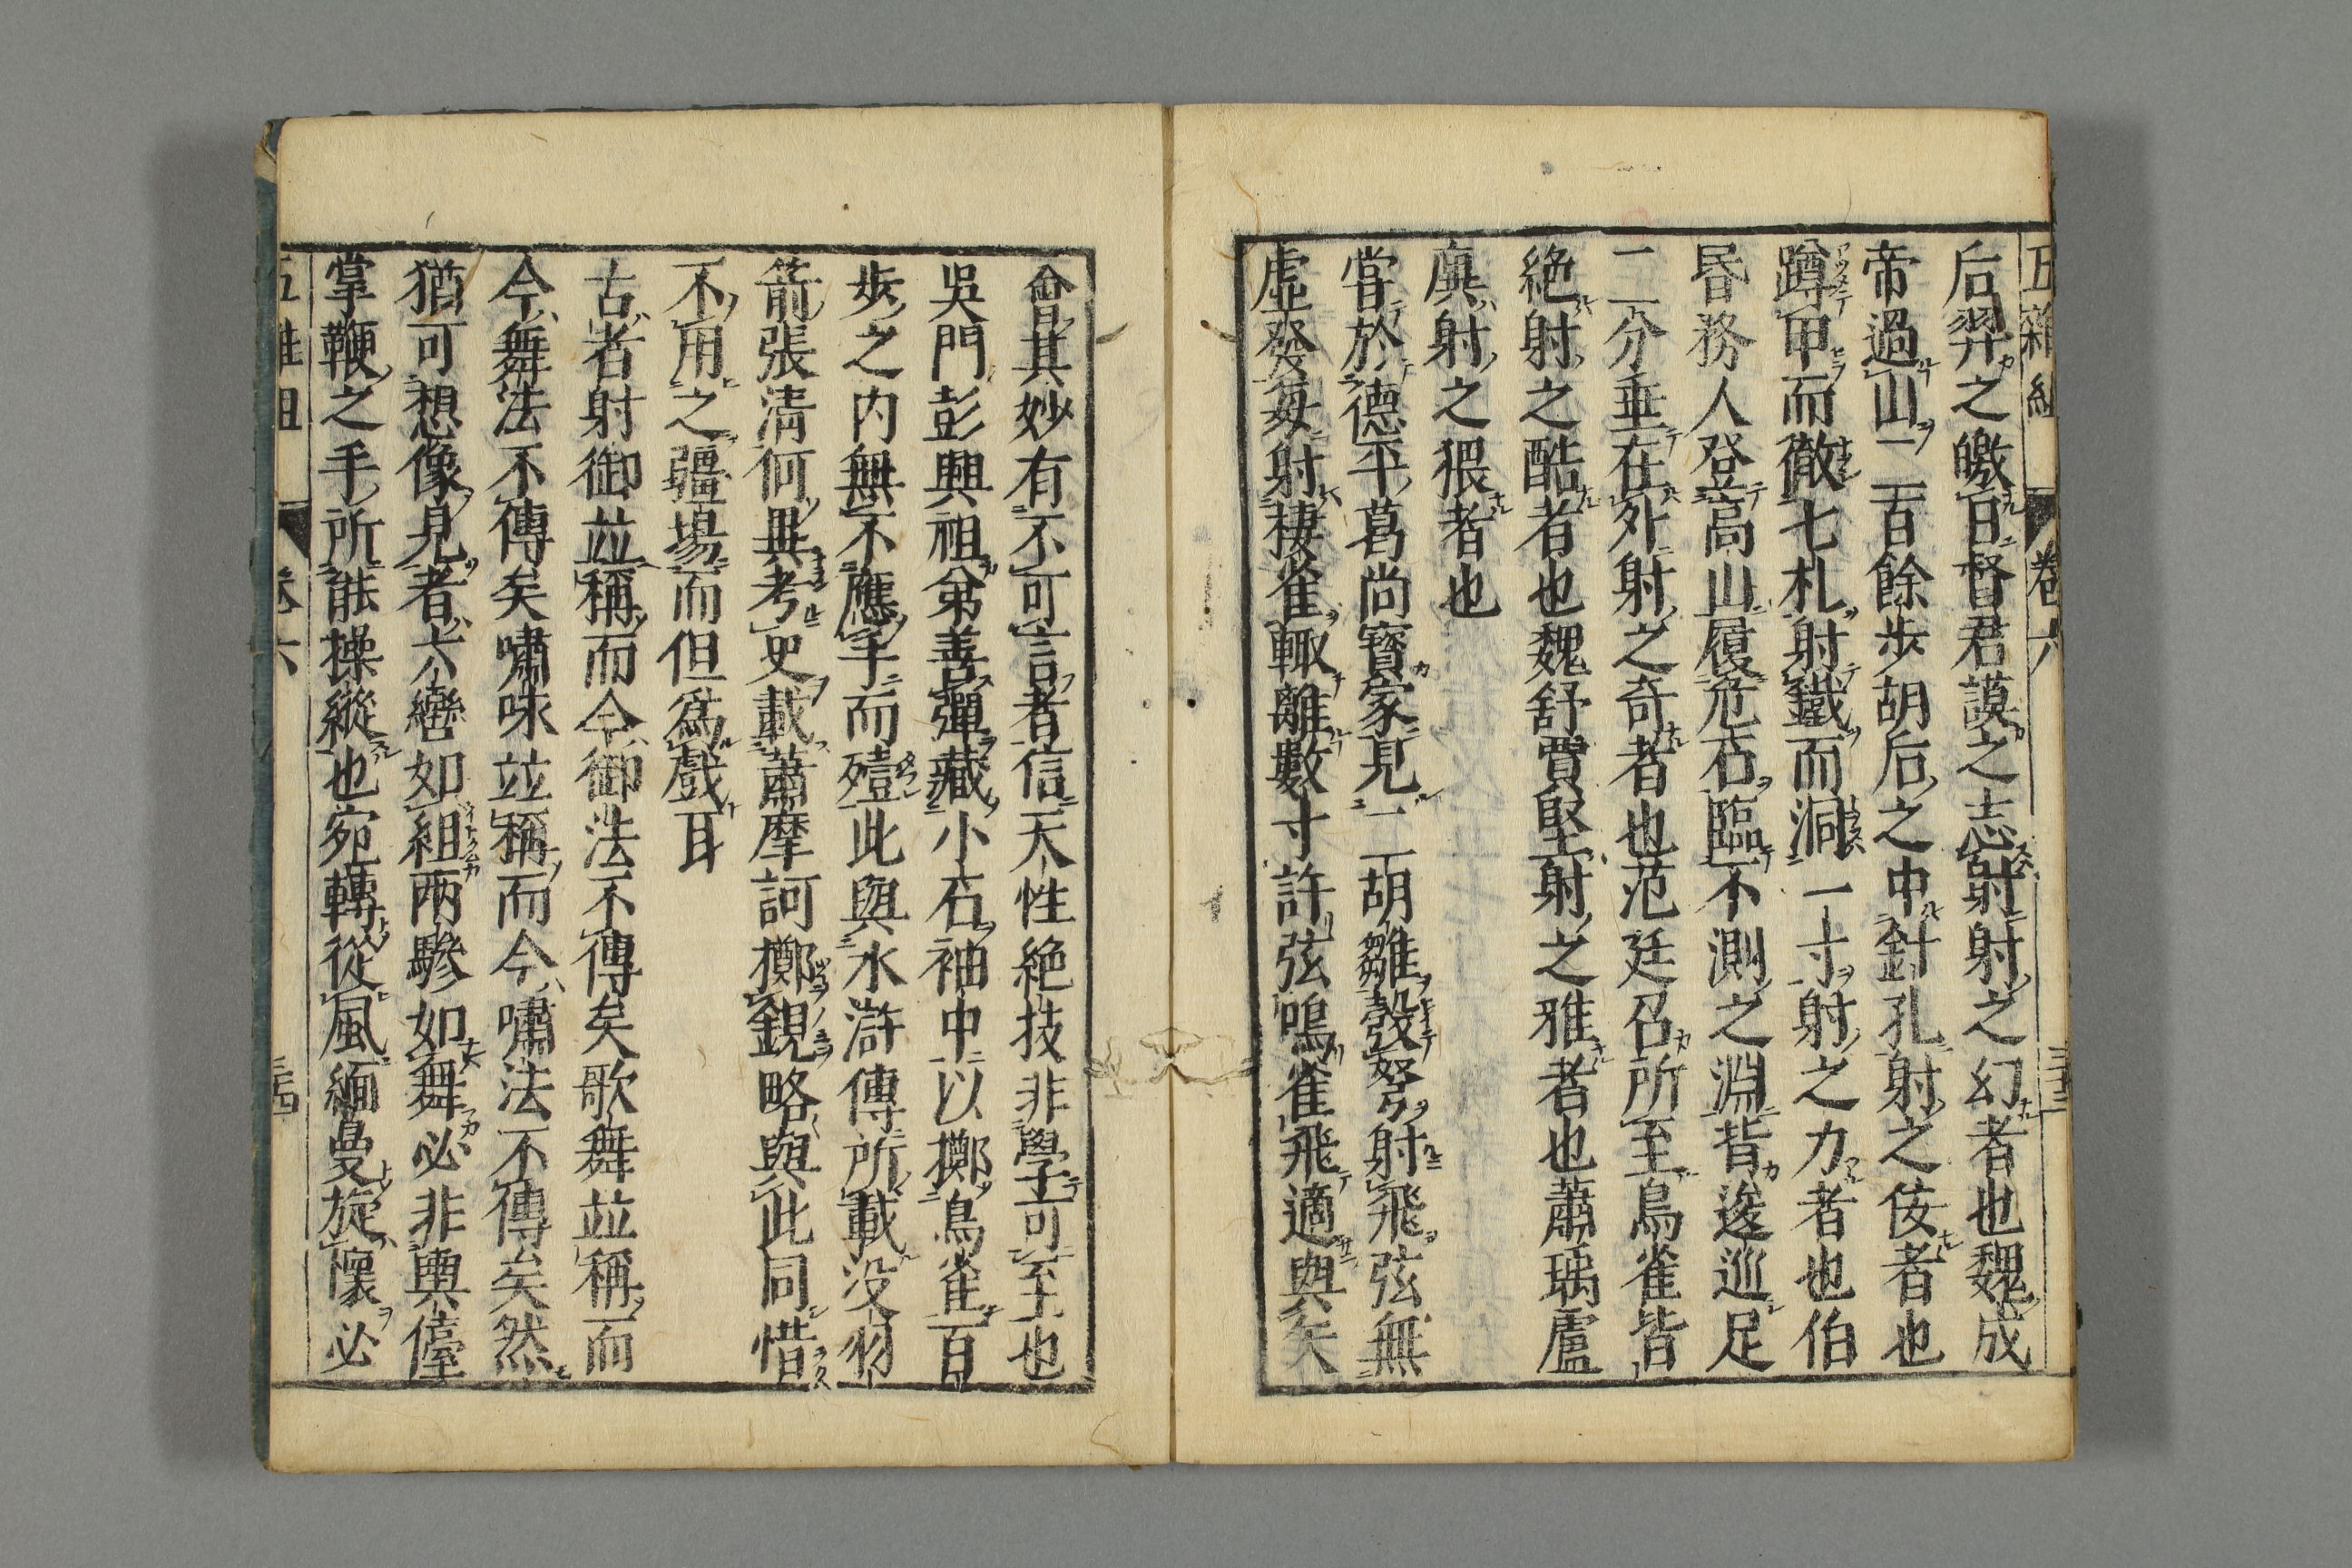 五雜組 卷六 三十三
后羿之皦日督君謨之志射射之幻者也魏成
帝過山二百餘步胡后之中針孔射之侫者也
蹲甲而徹七札射鐵而洞一寸射之力者也伯
昬務人登高山履危石臨不測之淵背逡巡足
二分垂在外射之奇者也范廷召所至鳥雀皆
絶射之酷者也魏舒賈堅射之雅者也蕭瑀盧
虞射之猥者也
嘗於德平葛尚寳家見二胡雛彀弩射飛弦無
虛發每射棲雀輙離數寸許弦鳴雀飛適與矢
會其妙有不可言者信天性絶技非學可至也
吳門彭興祖弟善彈藏小石袖中以擲鳥雀百
步之内無不應手而殪此與水滸傳所載没羽
箭張淸何異考史載蕭摩訶擲鋧略與此同惜
不用之疆場而但爲戲耳
古者射御並稱而今御法不傳矣歌舞並稱而
今舞法不傳矣嘯咏並稱而今嘯法不傳矣然
猶可想像見者六轡如組兩驂如舞必非輿儓
掌鞭之手所能操縱也宛轉從風緬曼旋懷必
五雜組 卷六 三十四